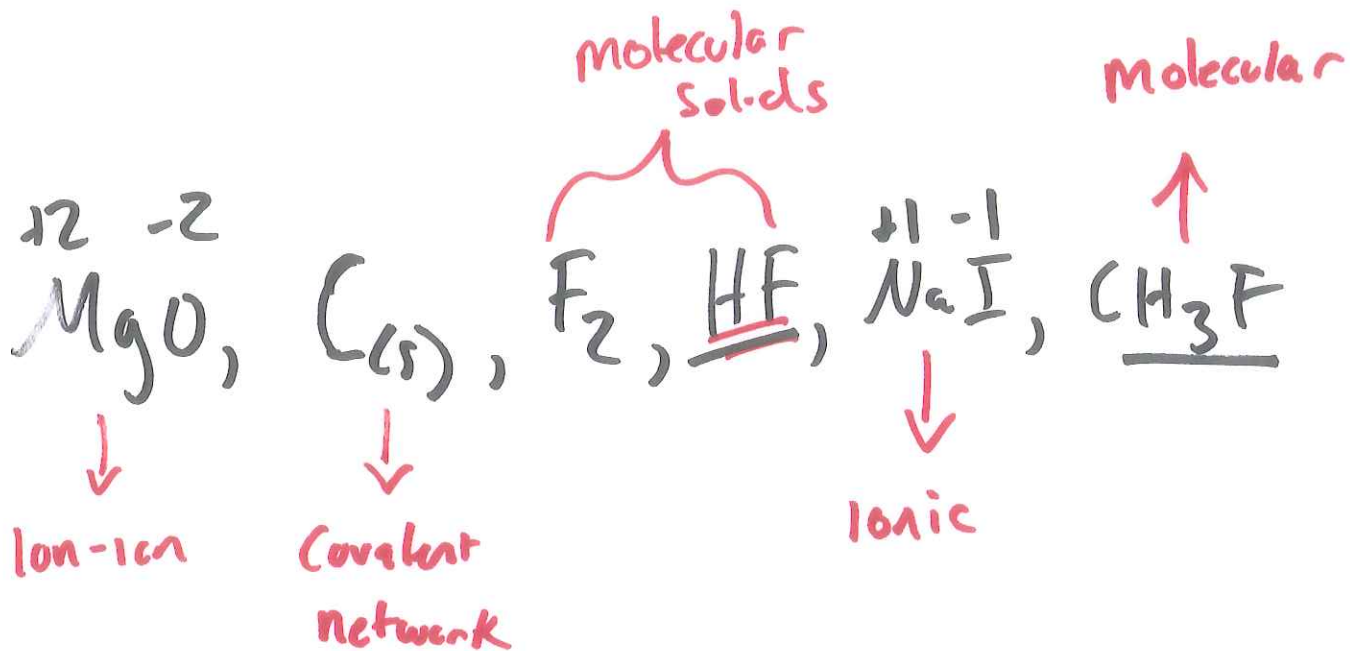 molecular
solids
molecular
+2 -2
+1 -1
MgO, C(s), F2, HF, NaI, CH3F
Ion-ion
Covalent
network
Ionic